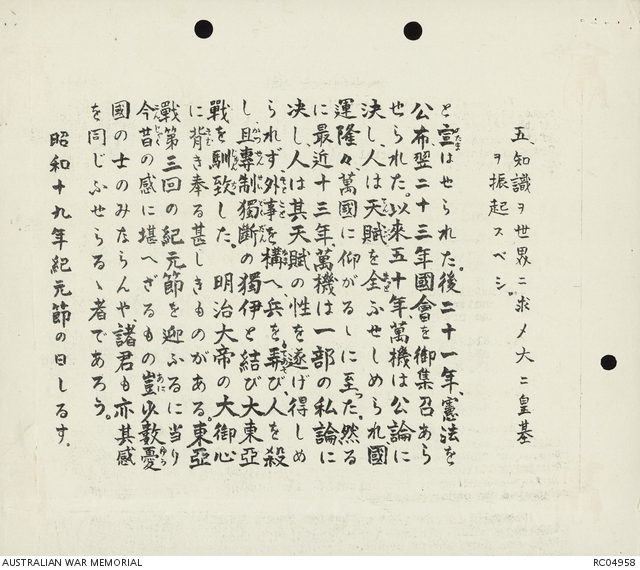 五、知識ヲ世界ニ求メ大ニ皇基
ヲ振起スベシ。
と宣はせられた。後二十一年、憲法を
公布翌二十三年國會を御集召あら
せられた。以来五十年、萬機は公論に
決し、人は天賦を全ふせしめられ國
運隆々萬國に仰がるしに至った。然る
に最近十三年、萬機は一部の私論に
決し人は其天賦の性を遂げ得しめ
られず、外事を構へ兵を弄び、人を殺
し、且專制獨断の獨伊と結び大東亞
戰を馴致した。明治大帝の大御心
に背き奉る甚しきものがある。東亞
戰第三回の紀元節を迎ふるに当り
今昔の感に堪へざるもの豈少数憂
國の士のみならんや、諸君も亦其感
を同じふせらるゝ者であろう。
昭和十九年紀元節の日しるす。
AUSTRALIAN WAR MEMORIAL
RC04958